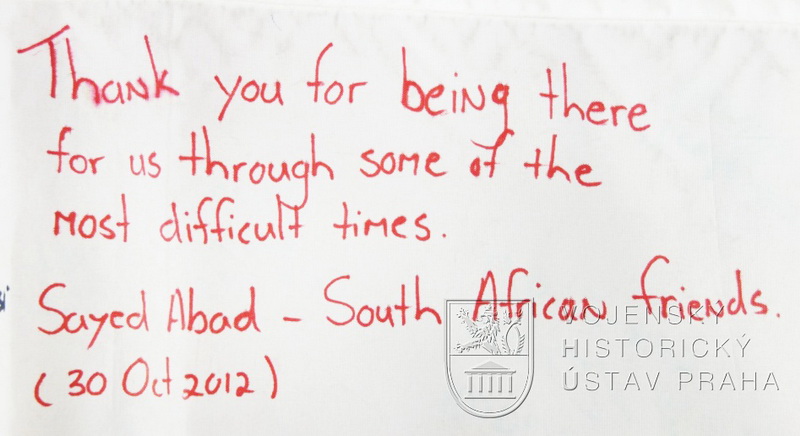 Thank you for being there
for us through some of the
most difficult times.
Sayed Abad - South African friends.
(30 Oct 2012)
VOJENSKÝ
HISTORICKÝ
ÚSTAV PRAHA